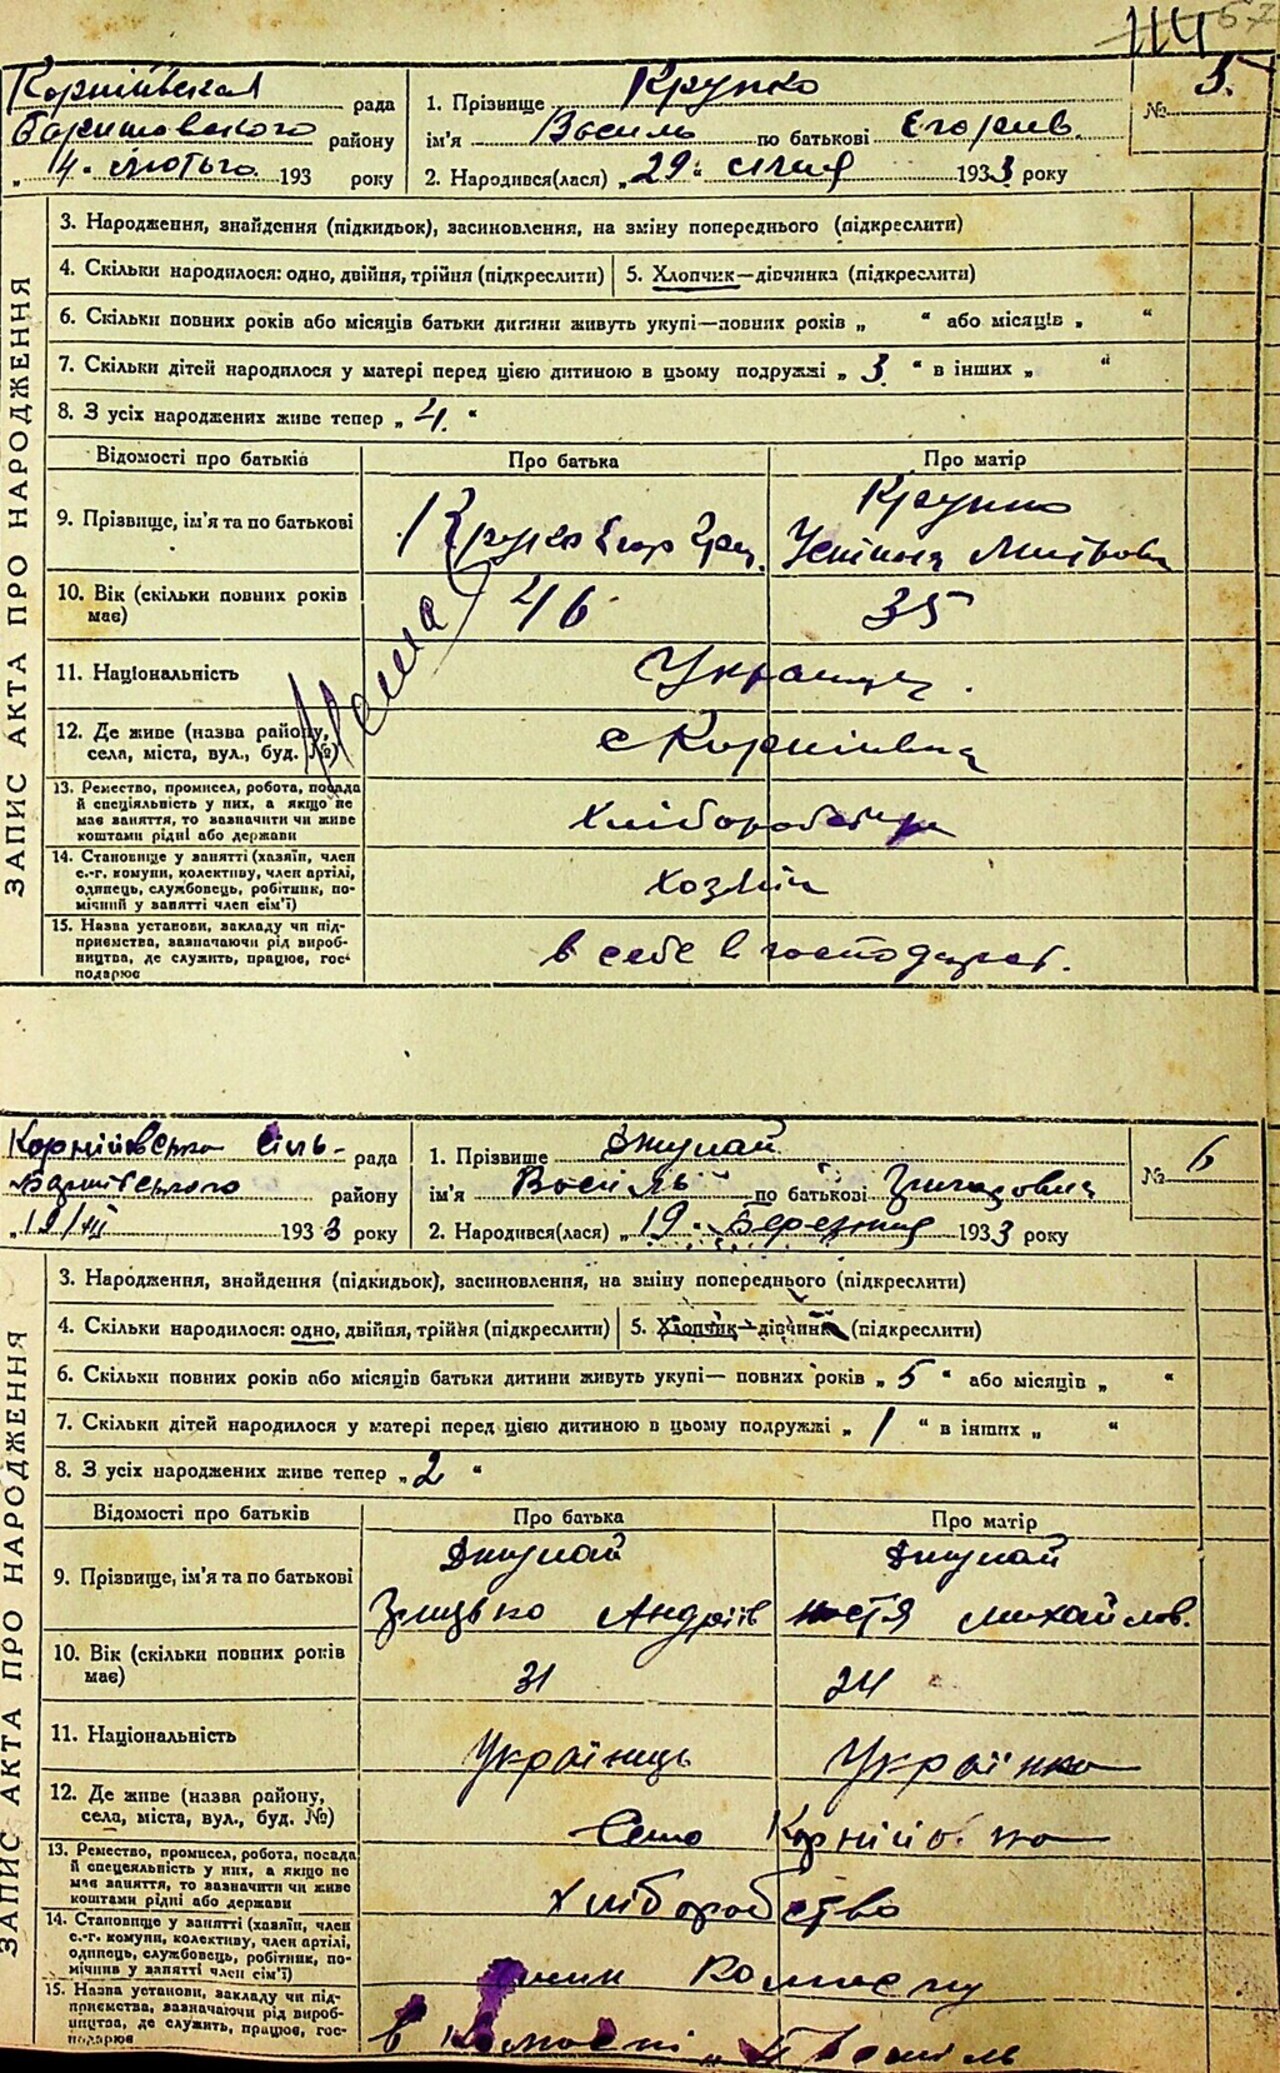 114 67
Корніївская рада
Баришовского району
„ 4 “ лютого 193 року
1. Прізвище Крупко
ім'я Василь по батькові Єгорів.
2. Народився(лася) „ 29 “ січня 1933 року
№ 5.
ЗАПИС АКТА ПРО НАРОДЖЕННЯ
3. Народження, знайдення (підкидьок), засиновлення, на зміну попереднього (підкреслити)
4. Скільки народилося: одно, двійня, трійня (підкреслити) 5. Хлопчик—дівчинка (підкреслити)
6. Скільки повних років або місяців батьки дитини живуть укупі—повних років „ “ або місяців „ “
7. Скільки дітей народилося у матері перед цією дитиною в цьому подружжі „ 3. “ в інших „ “
8. З усіх народжених живе тепер „ 4. “
Відомості про батьків Про батька Про матір
9. Прізвище, ім'я та по батькові Крупко Єгор Крупко
Устиня Митровна
10. Вік (скільки повних років має) 46 35
11. Національність Українці.
12. Де живе (назва району, села, міста, вул., буд. №) с Корніївка
13. Ремество, промисел, робота, посада
й спеціяльність у них, а якщо не
має заняття, то зазначити чи живе
коштами рідні або держави
14. Становище у занятті (хазяїн, член
с.-г. комуни, колективу, член артілі,
одинець, службовець, робітник, по-
мічний у занятті член сім'ї)
хозяїн
15. Назва установи, закладу чи під-
приємства, зазначаючи рід вироб-
ництва, де служить, працює, гос-
подарює
в себе в господарст.
Корніївська сіль- рада
Баришівського району
„ 19/III 1933 року
1. Прізвище Джулай
ім'я Василь по батькові Грицькович
2. Народився(лася) „ 19 “ Березня 1933 року
№ 6
ЗАПИС АКТА ПРО НАРОДЖЕННЯ
3. Народження, знайдення (підкидьок), засиновлення, на зміну попереднього (підкреслити)
4. Скільки народилося: одно, двійня, трійня (підкреслити) 5. Хлопчик—дівчинка (підкреслити)
6. Скільки повних років або місяців батьки дитини живуть укупі— повних років „ 5 “ або місяців „ “
7. Скільки дітей народилося у матері перед цією дитиною в цьому подружжі „ 1 “ в інших „ “
8. З усіх народжених живе тепер „ 2 “
Відомості про батьків Про батька Про матір
Джулай Джулай
9. Прізвище, ім'я та по батькові Грицько Андріїв Настя Михайлов.
10. Вік (скільки повних років має) 31 24
11. Національність Українець Українка
12. Де живе (назва району, села, міста, вул., буд. №) Село Корніївка
13. Ремество, промисел, робота, посада
й спецеяльність у них, а якщо не
має заняття, то зазначити чи живе
коштами рідні або держави
хліборобство
14. Становище у занятті (хазяїн, член
с.-г. комуни, колективу, член артілі,
одинець, службовець, робітник, по-
мічний у занятті член сім'ї)
член
15. Назва установи, закладу чи під-
приємства, зазначаючи рід вироб-
ництва, де служить, працює, гос-
подарює
в